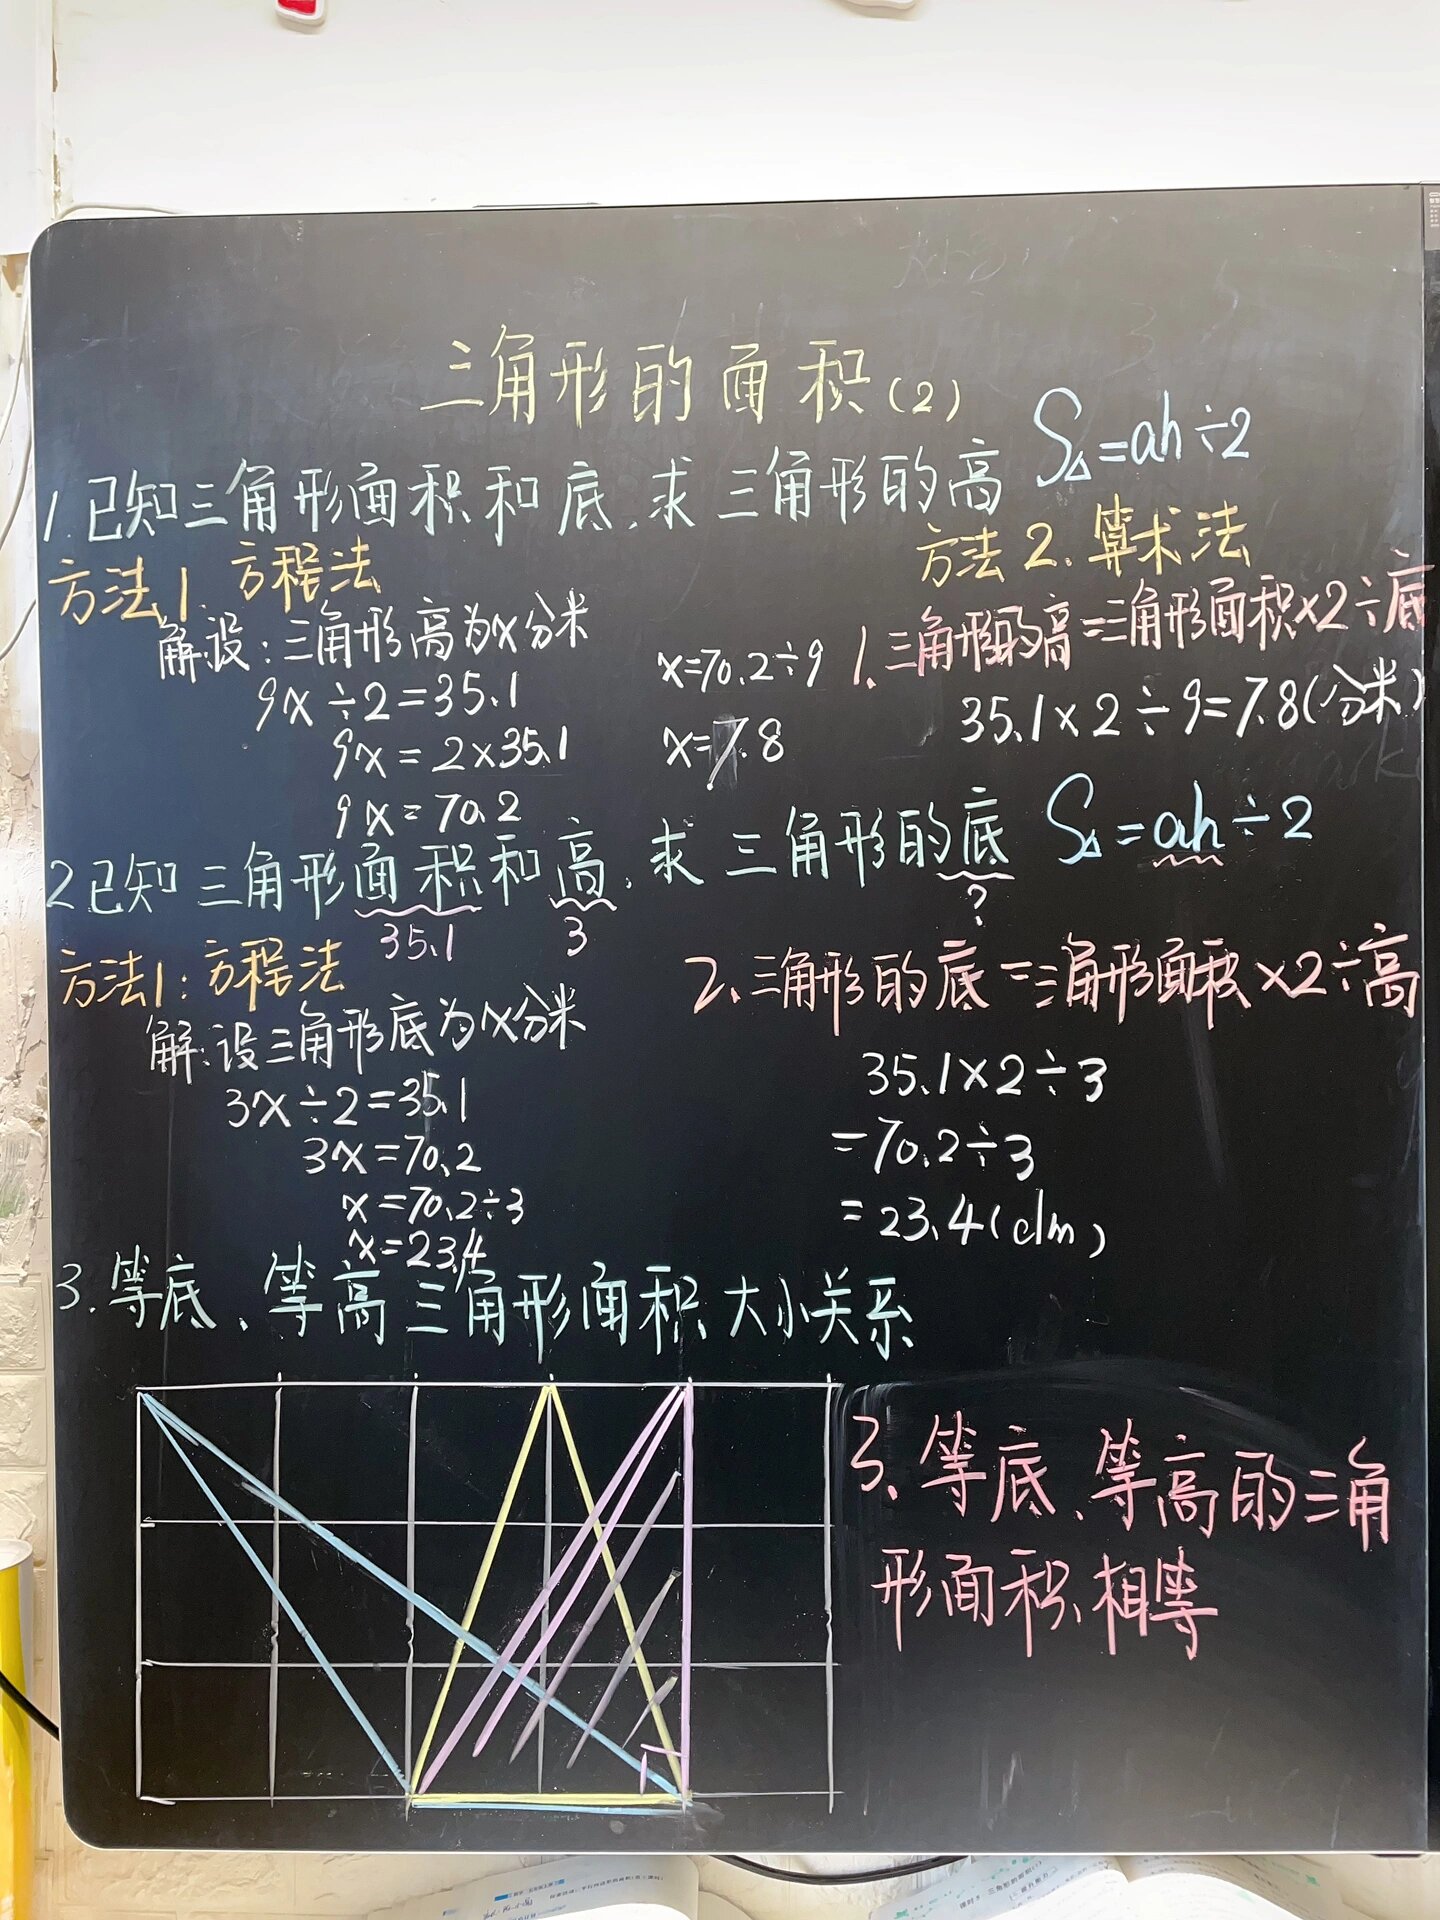 三角形的面积(2)
1.已知三角形面积和底,求三角形的高 S△=ah÷2
方法1.方程法
解:设:三角形高为x分米
9x÷2=35.1
9x=2×35.1
9x=70.2
x=70.2÷9
x=7.8
方法2.算术法
1.三角形的高=三角形面积×2÷底
35.1×2÷9=7.8(分米)
2已知三角形面积和高,求三角形的底 S△=ah÷2
35.1 3 ?
方法1:方程法
解:设三角形底为x分米
3x÷2=35.1
3x=70.2
x=70.2÷3
x=23.4
2、三角形的底=三角形面积×2÷高
35.1×2÷3
=70.2÷3
=23.4(dm)
3.等底、等高三角形面积大小关系
3、等底、等高的三角
形面积相等